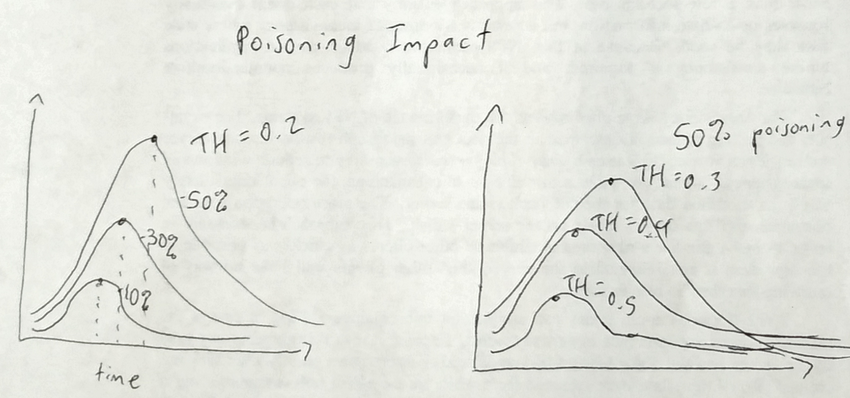 Poisoning Impact
TH = 0.2
50%
30%
10%
time
50% poisoning
TH = 0.3
TH = 0.4
TH = 0.5